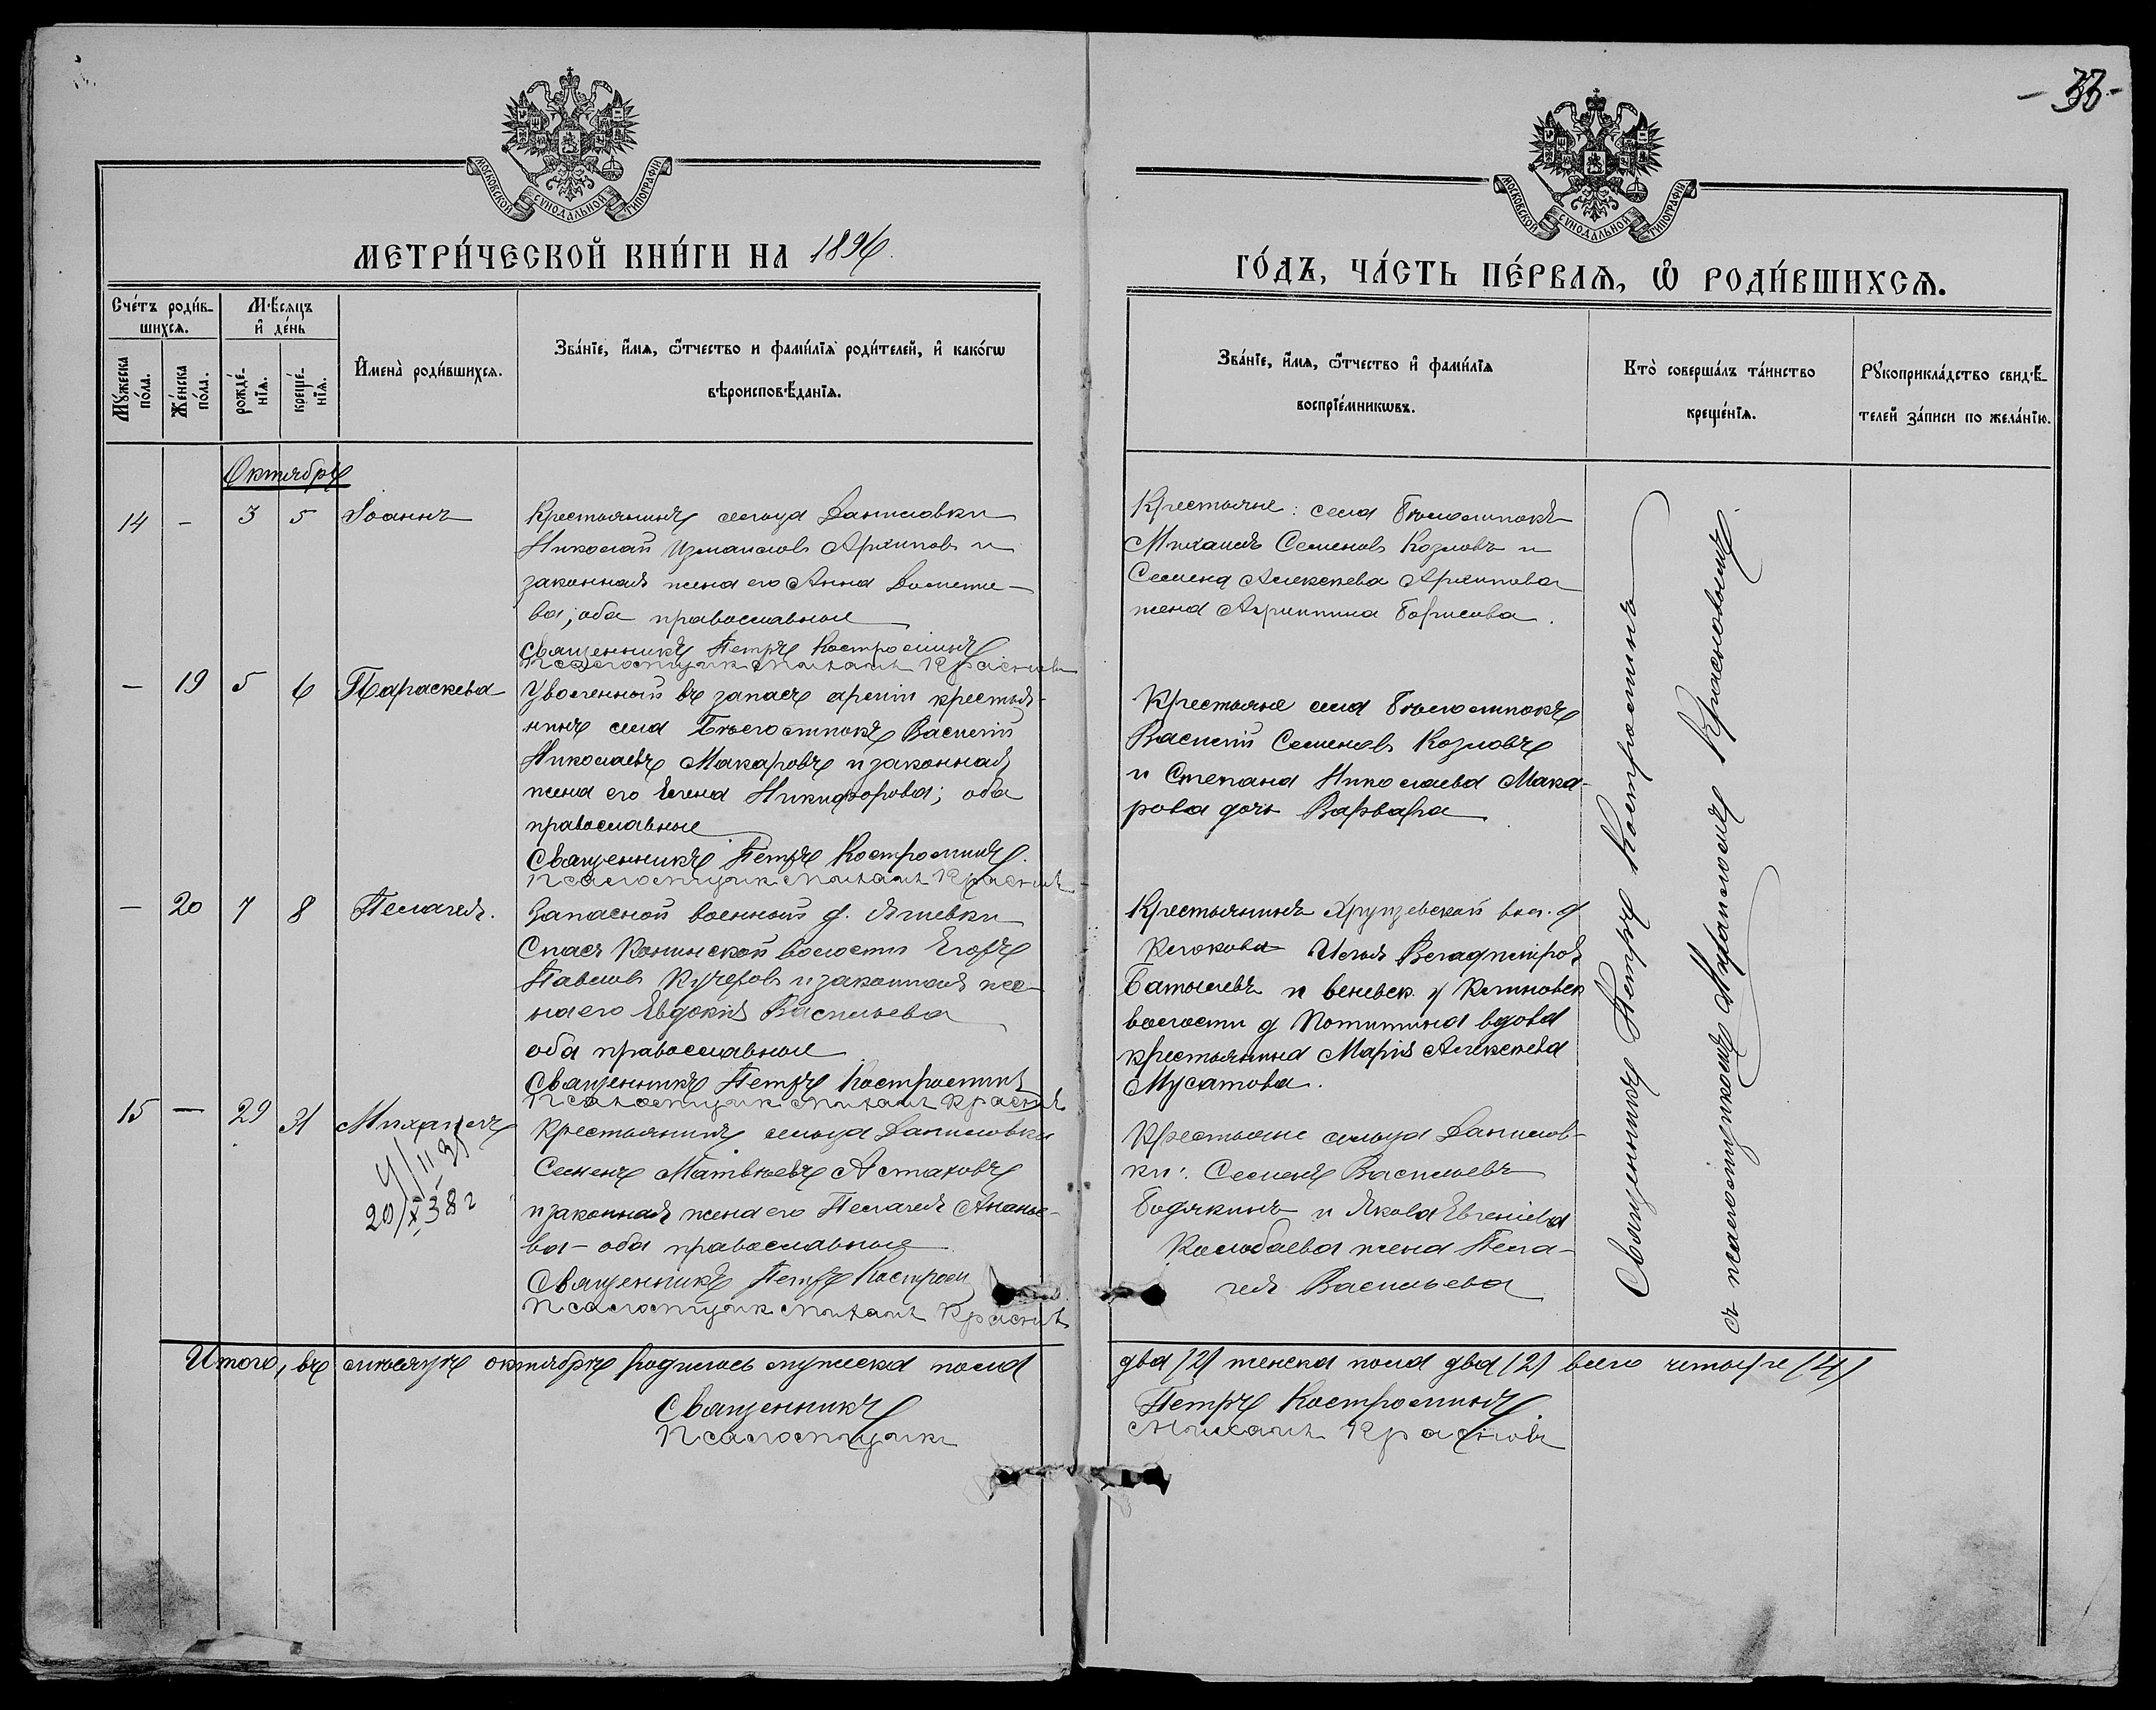 - 33 -
МОСКОВСКОЙ СѴНОДАЛЬНОЙ ТИПОГРАФІИ
МОСКОВСКОЙ СѴНОДАЛЬНОЙ ТИПОГРАФІИ
МЕТРИ́ЧЕСКОЙ КНИ́ГИ НА 1896
ГО́ДЪ, ЧА́СТЬ ПЕ́РВАѦ, Ѽ РОДИ́ВШИХСѦ.
Сче́тъ роди́в-
шихсѧ.
Мѣ́сѧцъ
и҆ де́нь
Мꙋ́жеска
по́ла.
Же́нска
по́ла.
рожде́-
нїѧ.
креще́-
нїѧ.
И҆мена̀ роди́вшихсѧ.
Зва́нїе, и҆́мѧ, ѻ҆́тчество и фами́лїѧ роди́телей, и҆ како́гѡ
вѣроисповѣ́данїѧ.
Зва́нїе, и҆́мѧ, ѻ҆́тчество и҆ фами́лїѧ
воспрїе́мникѡвъ.
Кто̀ соверша́лъ та́инство
креще́нїѧ.
Рꙋкоприкла́дство свидѣ́-
телей за́писи по жела́нїю.
Октябрь
14 - 3 5 Іоаннъ
Крестьянинъ сельца Даниловки
Николай Измаиловъ Архиповъ и
законная жена его Анна Дометіе-
ва; оба православные
Священникъ Петръ Костроминъ
Псаломщикъ Михаилъ Красновъ
Крестьяне: села Бѣлоомпокъ
Михаилъ Семеновъ Козловъ и
Семена Алексѣева Архипова
жена Акриппина Борисова.
- 19 5 6 Параскева
Уволенный въ запасъ арміи крестья-
нинъ села Василій
Николаевъ Макаровъ и законная
жена его Елена Никифорова; оба
православные
Священникъ Петръ Костроминъ.
Псаломщикъ Михаилъ Красновъ
Крестьяне села
Василій Семеновъ Козловъ
и Степана Николаева Мака-
рова дочь Варвара
- 20 7 8 Пелагея.
Запасной военный д.
Спасъ Конинской волости Егоръ
Павловъ Кучеровъ и законная же-
на его Евдокія Васильева
оба православные
Священникъ Петръ Костроминъ
Псаломщикъ Михаилъ Красновъ
Крестьянинъ вол. д
Илья Владиміровъ
и веневск. у
волости д вдова
крестьянина Марія Алексѣева
Мусатова.
15 - 29 31 Михаилъ
20/X 38 г
Крестьянинъ сельца Даниловки
Семенъ Матвѣевъ Астаховъ
и законная жена его Пелагея Ананье-
ва - оба православные
Священникъ Петръ Костроми
Псаломщикъ Михаилъ Красновъ
Крестьяне сельца Данилов-
ки: Семенъ Васильевъ
Бодякинъ и Якова Евгеніева
Колобаева жена Пела-
гея Васильева
Священникъ Петръ Костроминъ
съ псаломщикомъ Михаиломъ Красновымъ.
Итого, въ мѣсяцѣ октябрѣ родилось мужеска пола
два /2/ женска пола два /2/ всего четыре /4/
Священникъ Петръ Костроминъ
Псаломщикъ Михаилъ Красновъ